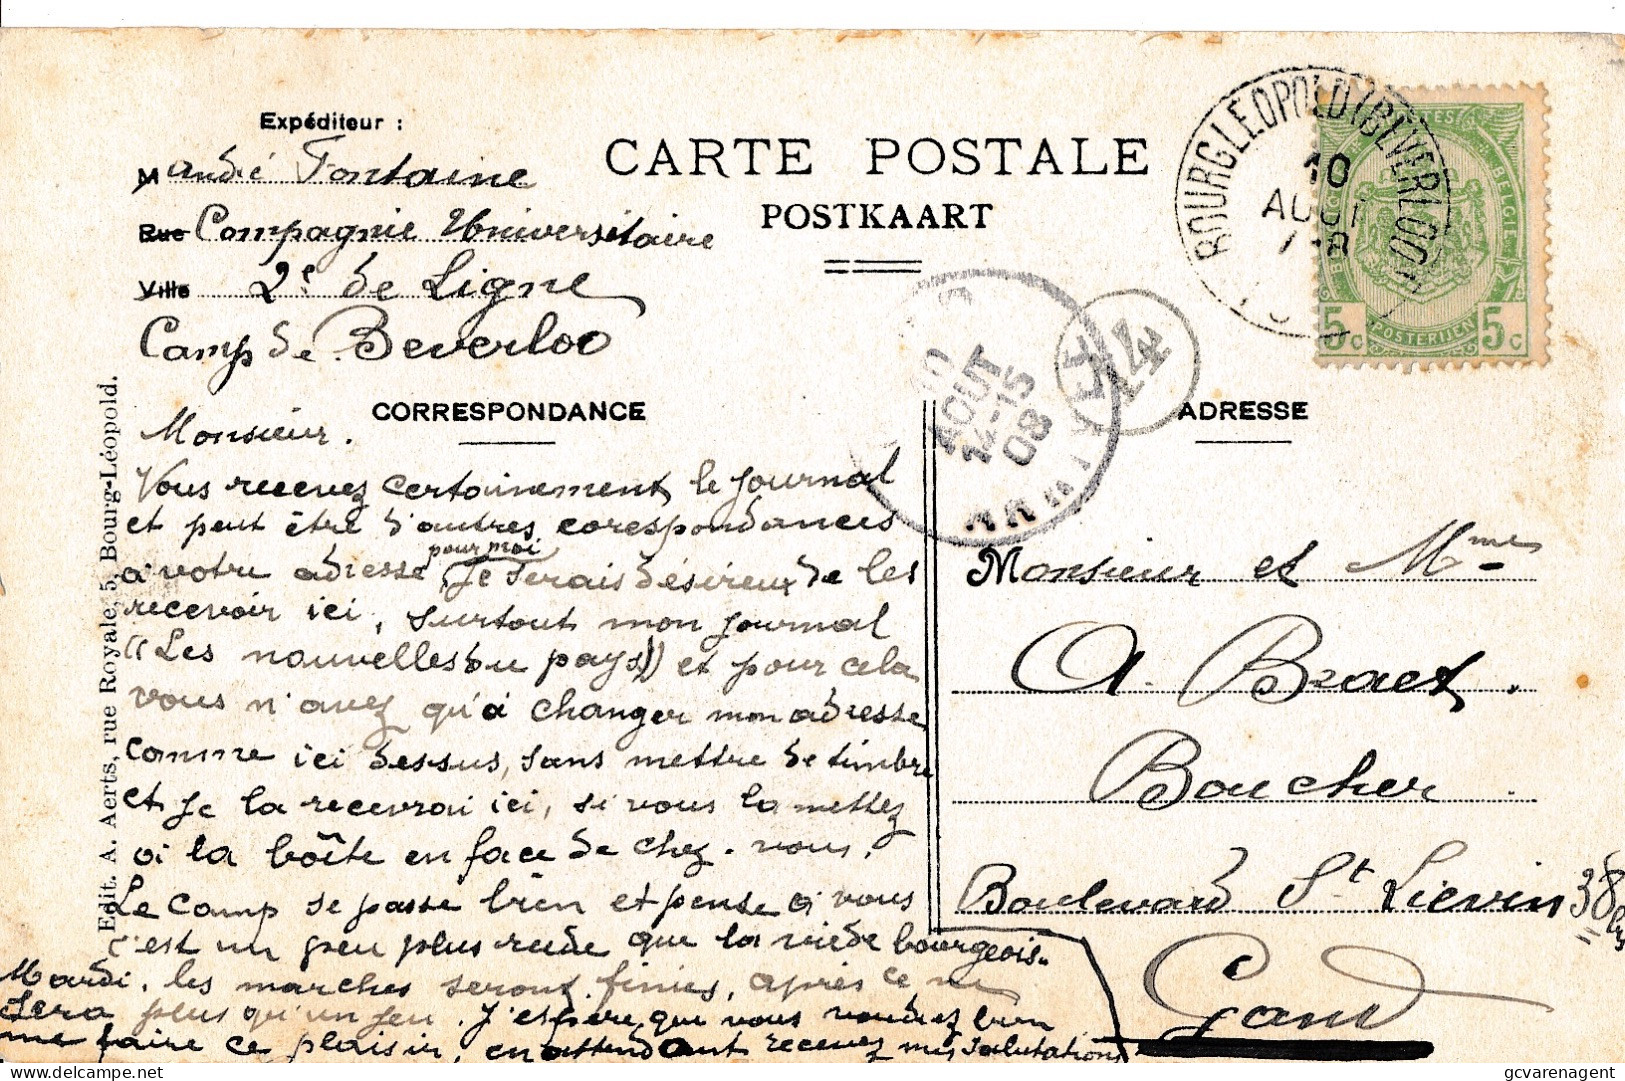 Expéditeur :
M André Fontaine
Rue Compagnie Universitaire
Ville 2e de Ligne
Camp de Beverloo
CARTE POSTALE
POSTKAART
BOURG LEOPOLD (BEVERLOO)
10
AOUT
7-8
BELGIE
5c POSTERIJEN 5c
AOUT
14-15
08
CORRESPONDANCE
ADRESSE
Monsieur.
Vous recevez certainement le journal
et peut être d'autres corespondances
pour moi
à votre adresse, je serais désireux de les
recevoir ici, surtout mon journal
((Les nouvelles du pays)) et pour cela
vous n'avez qu'à changer mon adresse
comme ici dessus, sans mettre de timbre
et je la recevrai ici, si vous la mettez
à la boîte en face de chez-vous.
Le camp se passe bien et pense à vous
c'est un peu plus rude que la vie de bourgeois.
Mardi, les marches seront finies, après ce ne
sera plus qu'un jeu. J'espère que vous voudrez bien
me faire ce plaisir, en attendant recevez mes salutations
Monsieur et Mme
A. Braet.
Boucher
Boulevard St Liévin 38 bis
Gand
Edit. A. Aerts, rue Royale, 5, Bourg-Léopold.
delcampe.net
gcvarenagent